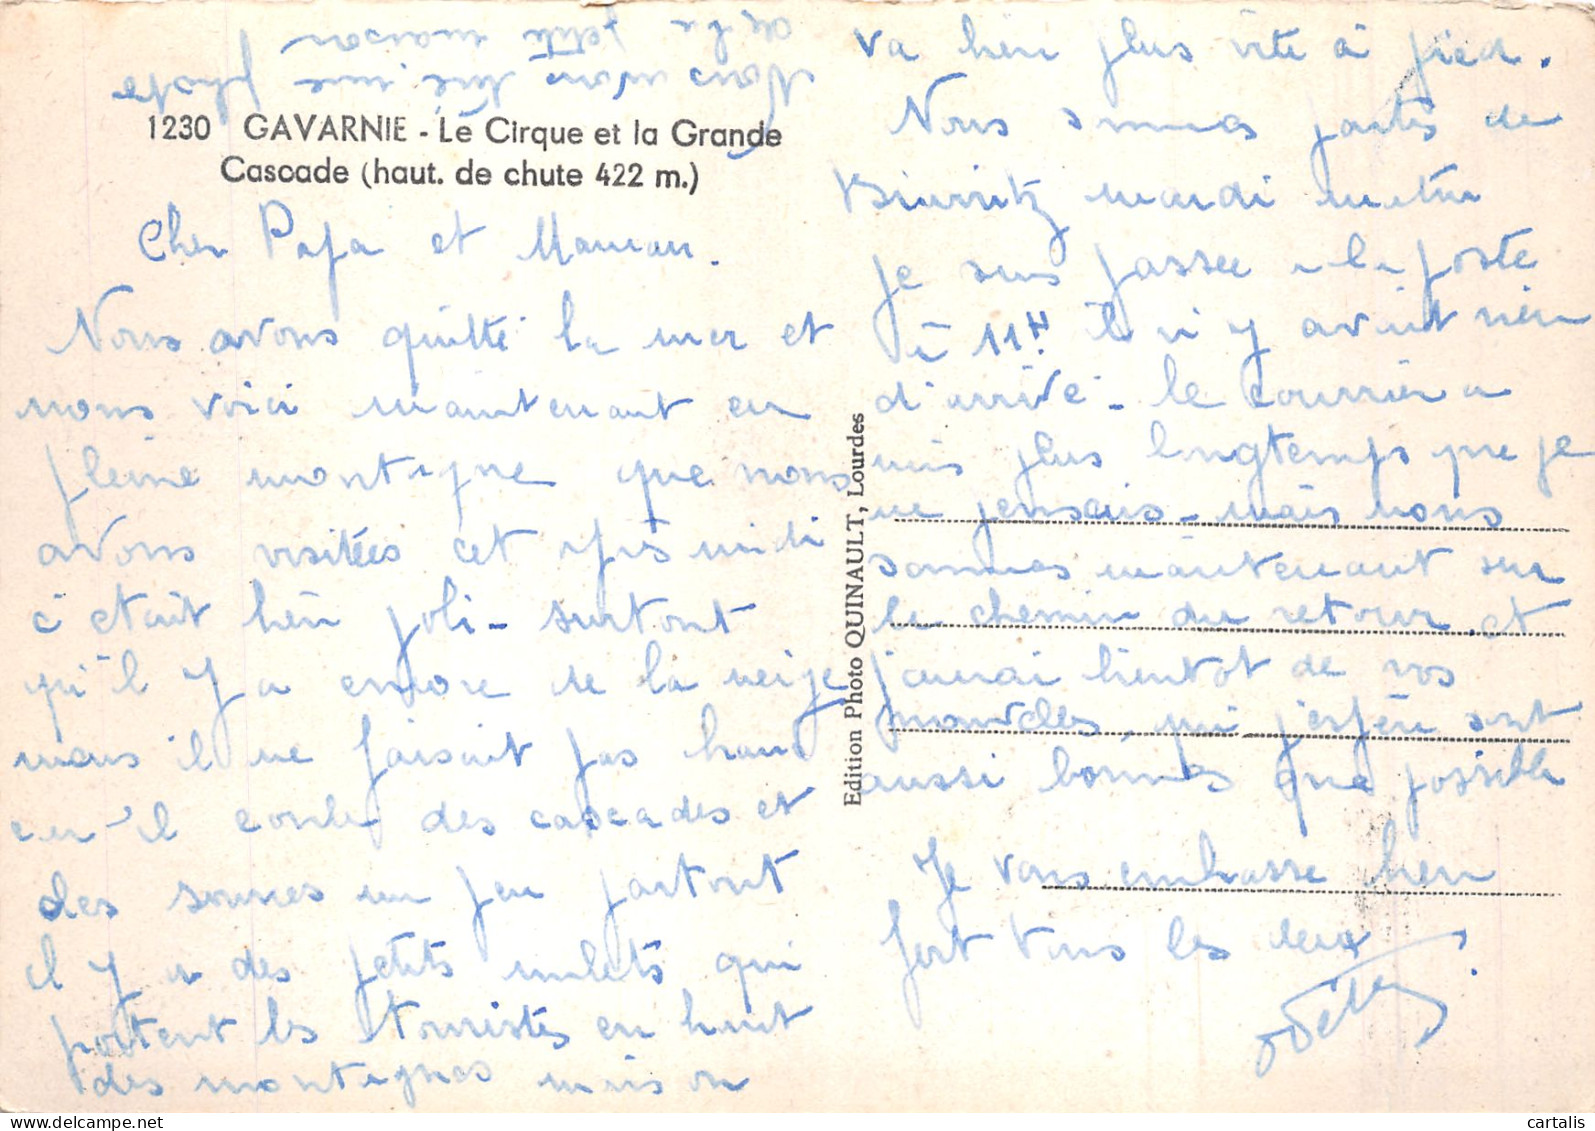 1230 GAVARNIE - Le Cirque et la Grande
Cascade (haut. de chute 422 m.)
Cher Papa et Maman.
Nous avons quitté la mer et
nous voici maintenant en
pleine montagne que nous
avons visitées cet après midi
c'était bien joli - surtout
qu'il y a encore de la neige
mais il ne faisait pas chaud
des cascades et
des sources un peu partout
il y a des petits mulets qui
portent les touristes en haut
des montagnes mais on
va bien plus vite à pied.
Nous sommes partis de
Biarritz mardi matin
je suis passée à la poste
à 11H. il n'y avait rien
d'arrivé - le courrier a
mis plus longtemps que je
ne pensais - mais nous
sommes maintenant sur
le chemin du retour. et
j'aurai bientôt de vos
nouvelles, qui j'espère sont
aussi bonnes que possible
Je vous embrasse bien
fort tous les deux
Odette
Nous avons tiré une photo
de la petite maison
Edition Photo QUINAULT, Lourdes
cartalis
delcampe.net